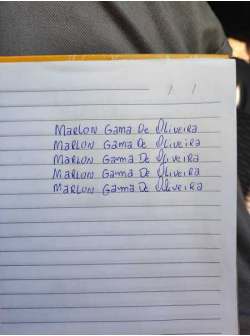 / /
MARLON Gama De Oliveira
MARLON Gama De Oliveira
MARLON Gama De Oliveira
MARLON Gama De Oliveira
MARLON Gama De Oliveira